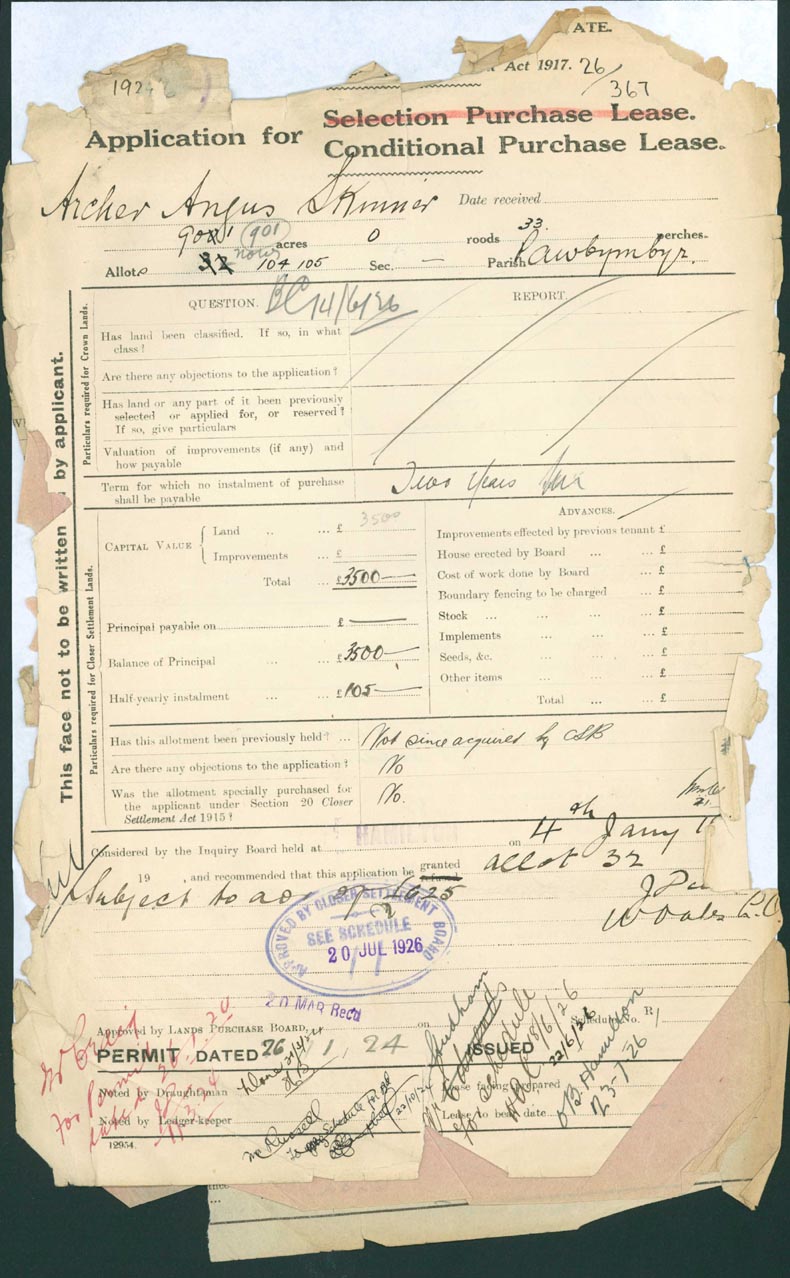 ATE.
Act 1917. 26/
367
192
Application for
Selection Purchase Lease.
Conditional Purchase Lease.
Archer Angus Skinner Date received
901 acres 0 roods 33. perches.
Allot. 32 now 104 105 Sec. — Parish
QUESTION. 14/6/26 REPORT.
Particulars required for Crown Lands.
Has land been classified. If so, in what
class?
Are there any objections to the application?
Has land or any part of it been previously
selected or applied for, or reserved?
If so, give particulars
Valuation of improvements (if any) and
how payable
Term for which no instalment of purchase
shall be payable
Two years
This face not to be written by applicant.
Particulars required for Closer Settlement Lands.
CAPITAL VALUE
Land .. ... £ 3500
Improvements ... £
Total ... £3500—
Principal payable on ... £ —
Balance of Principal ... ... £3500—
Half-yearly instalment ... ... £105—
ADVANCES.
Improvements effected by previous tenant £
House erected by Board ... ... £
Cost of work done by Board ... £
Boundary fencing to be charged ... £
Stock ... ... ... ... £
Implements ... ... ... £
Seeds, &c. ... ... ... £
Other items ... ... ... £
Total ... ... £
Has this allotment been previously held? ... Not since acquired by CSB
Are there any objections to the application? No
Was the allotment specially purchased for
the applicant under Section 20 Closer
Settlement Act 1915?
No.
Considered by the Inquiry Board held at HAMILTON on 4th Jany
19 , and recommended that this application be granted allot 32
refused
Subject to
APPROVED BY CLOSER SETTLEMENT BOARD
SEE SCHEDULE
20 JUL 1926
20 MAR Recd
Approved by LANDS PURCHASE BOARD, on Schedule No.
PERMIT DATED 26 / 1 / 24 ISSUED
Noted by Draughtsman Lease facing prepared
Noted by Ledger-keeper Lease to be date
12954.
Mr Craig
for Permit
26.1.24
Done
Mr Russell
22/10/24
for schedule
18/6/26
22/6/26
Hamilton
23-7-26